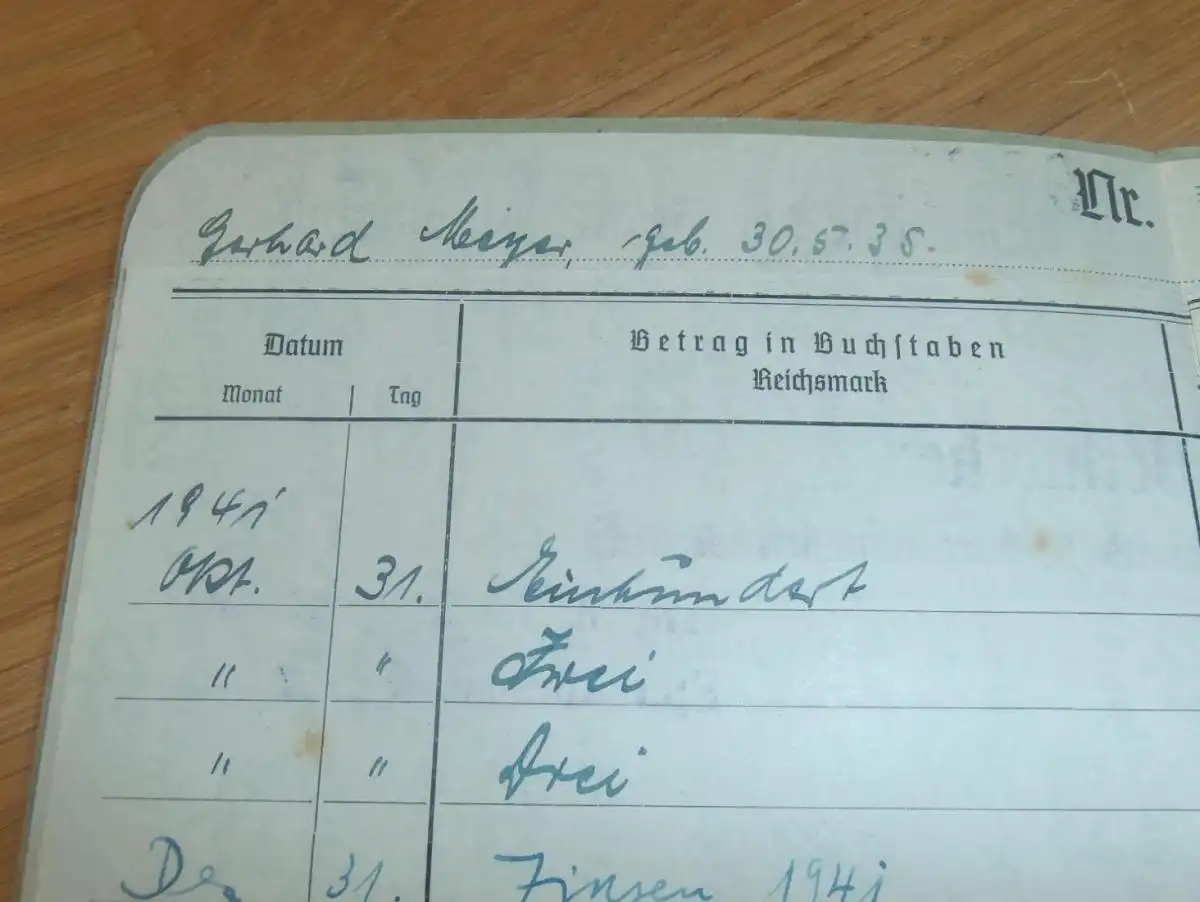 Nr.
Gerhard Meyer, geb. 30.5.35.
Datum
Betrag in Buchstaben
Reichsmark
Monat Tag
1941
Okt. 31. Einhundert
" " Zwei
" " Drei
Dez 31. Zinsen 1941